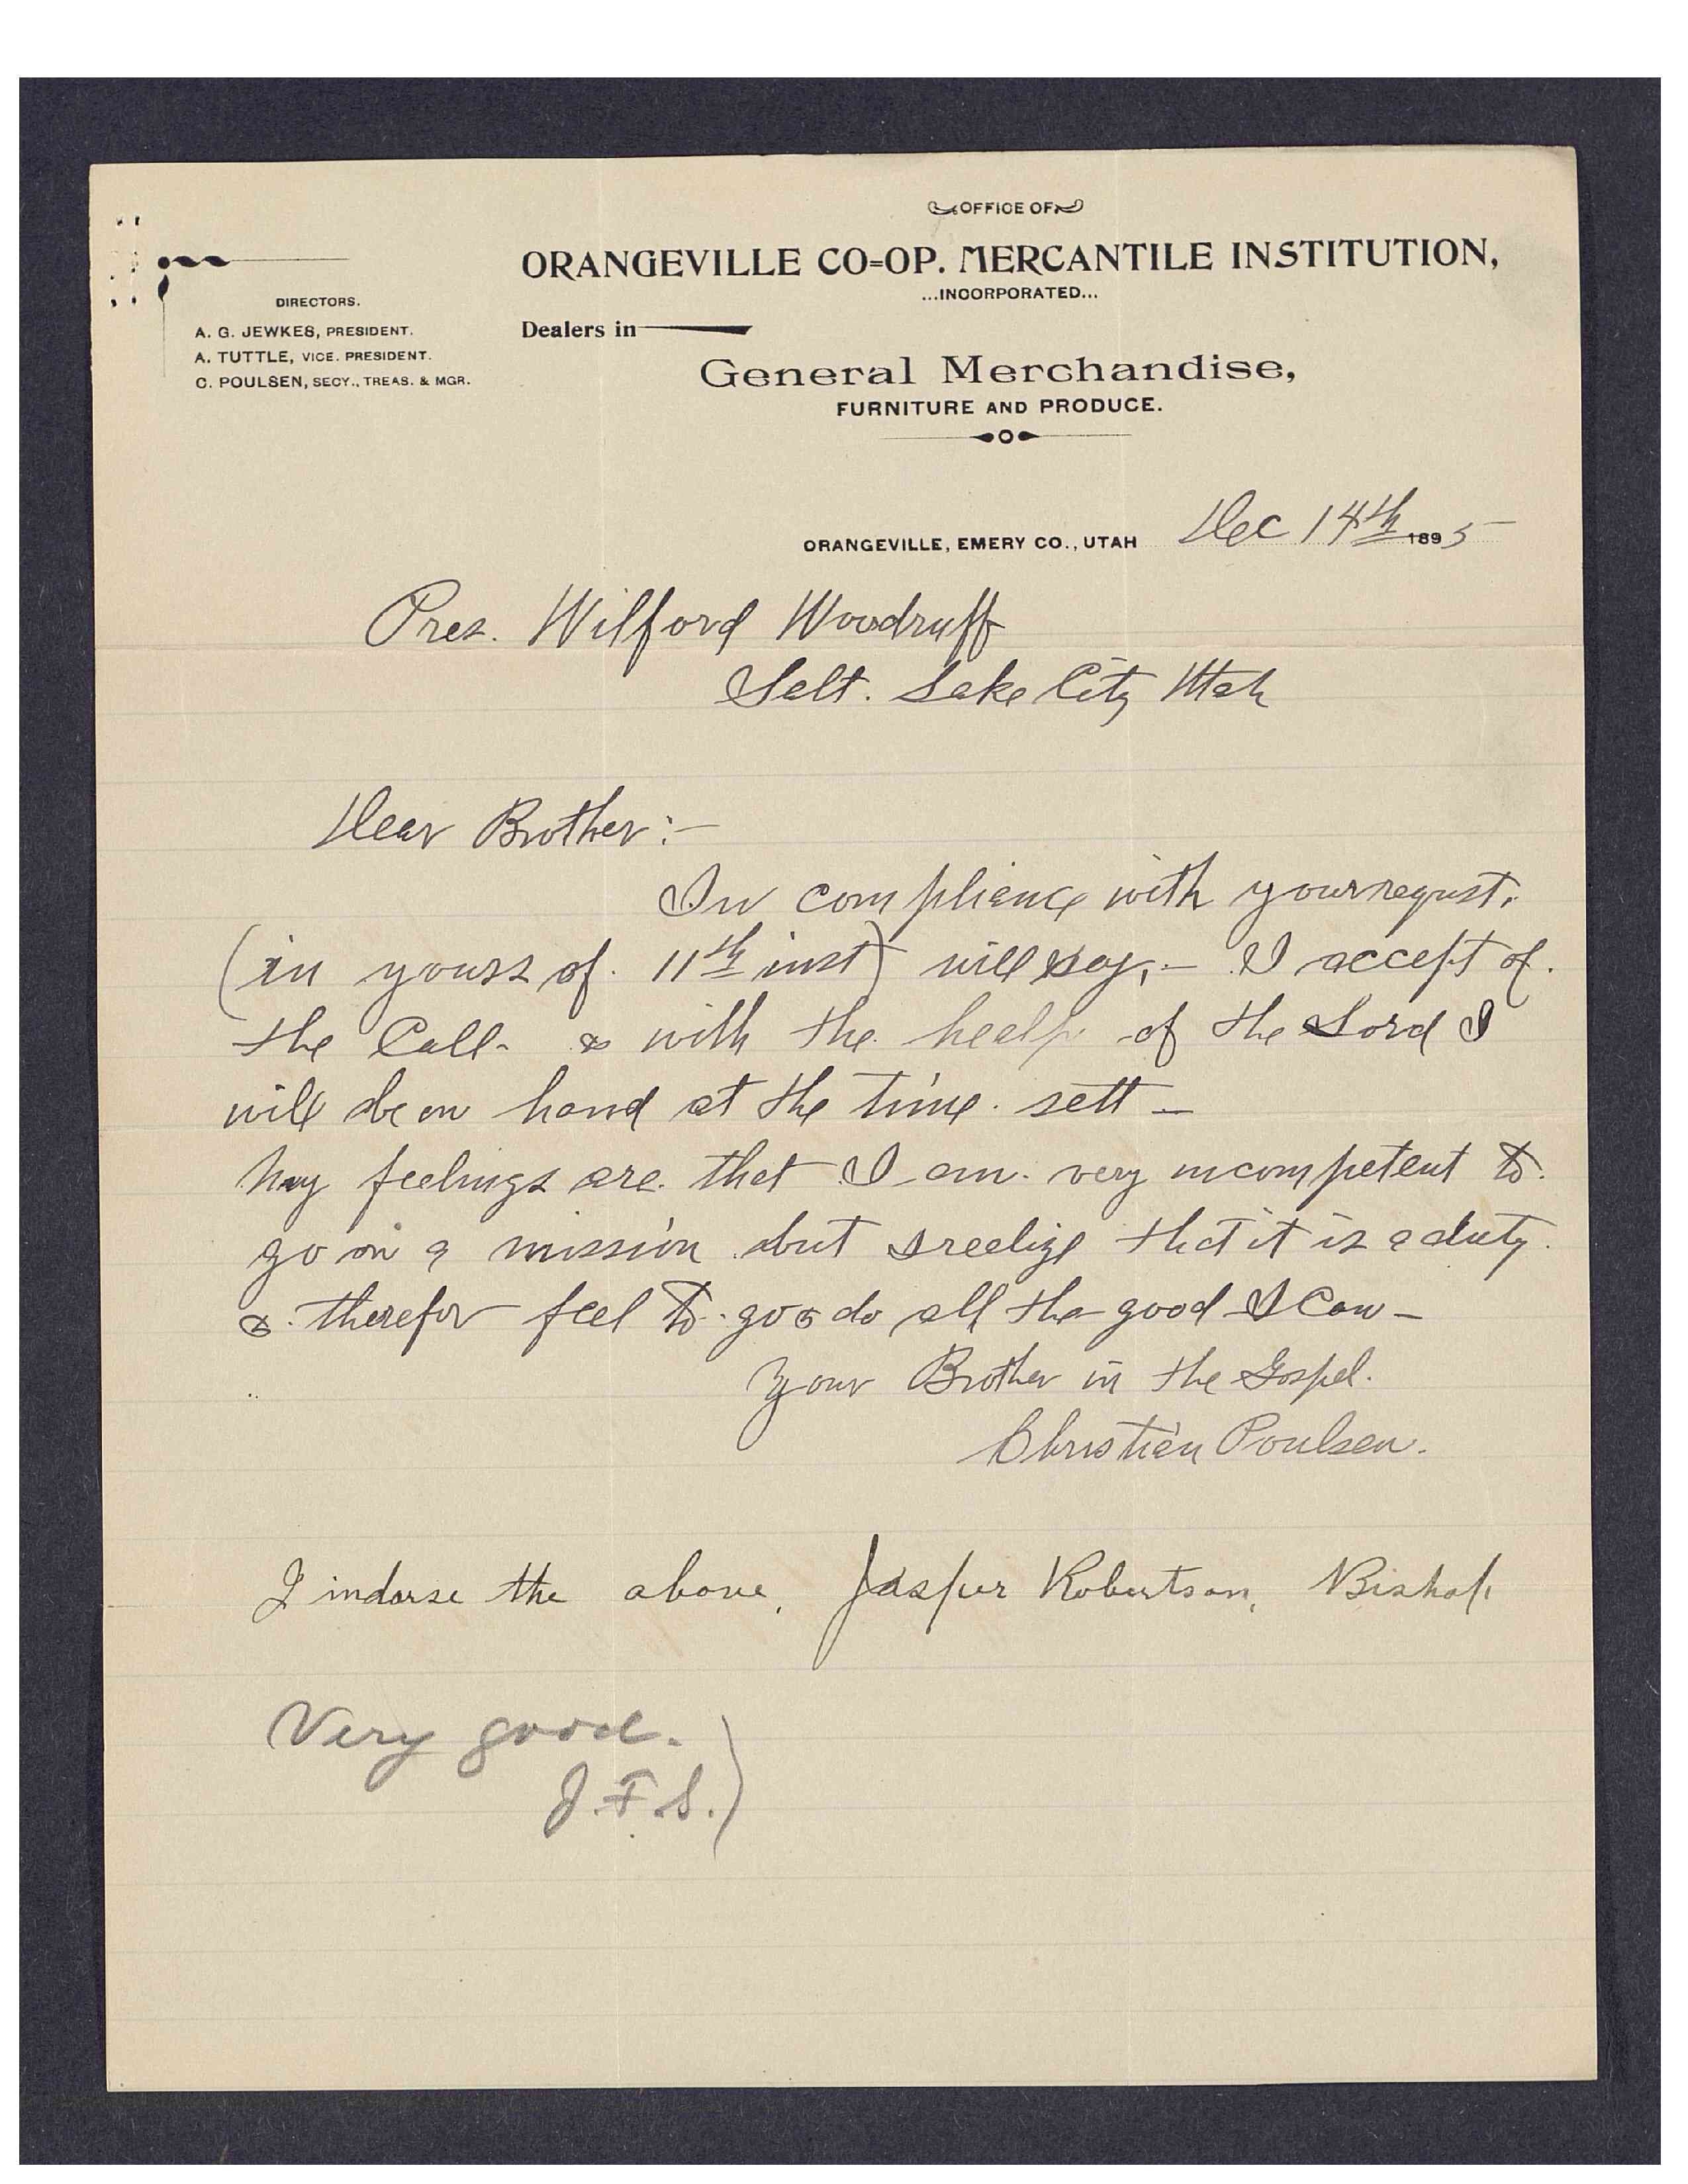 OFFICE OF
ORANGEVILLE CO=OP. MERCANTILE INSTITUTION,
...INCORPORATED...
DIRECTORS.
A. G. JEWKES, PRESIDENT.
A. TUTTLE, VICE. PRESIDENT.
C. POULSEN, SECY., TREAS. & MGR.
Dealers in
General Merchandise,
FURNITURE AND PRODUCE.
ORANGEVILLE, EMERY CO., UTAH Dec 14th 1895
Pres. Wilford Woodruff
Salt. Lake City Utah
Dear Brother:-
In complience with your requst.
(in yours of. 11th inst) will say,- I accept of.
the Call- & with the healp of the Lord I
will be on hand at the time. sett -
My feelings are. that I am. very incompetent to.
go on a mission but I realize that it is a duty.
&. therefor feel to. go & do all the good I Can -
Your Brother in the Gospel.
Christian Poulsen.
I indorse the above, Jasper Robertson, Bishop
Very good.
J.F.S.)